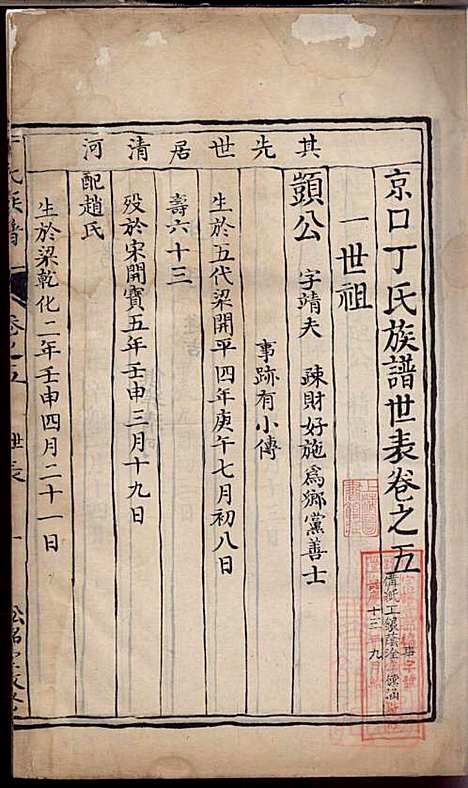 京口丁氏族譜世表卷之五
一世祖
其先世居清河
顗公 字靖夫 疎財好施為鄉黨善士
事跡有小傳
生於五代梁開平四年庚午七月初八日
壽六十三
歿於宋開寶五年壬申三月十九日
配趙氏
生於梁乾化二年壬申四月二十一日
氏族譜
卷之五
世表
一